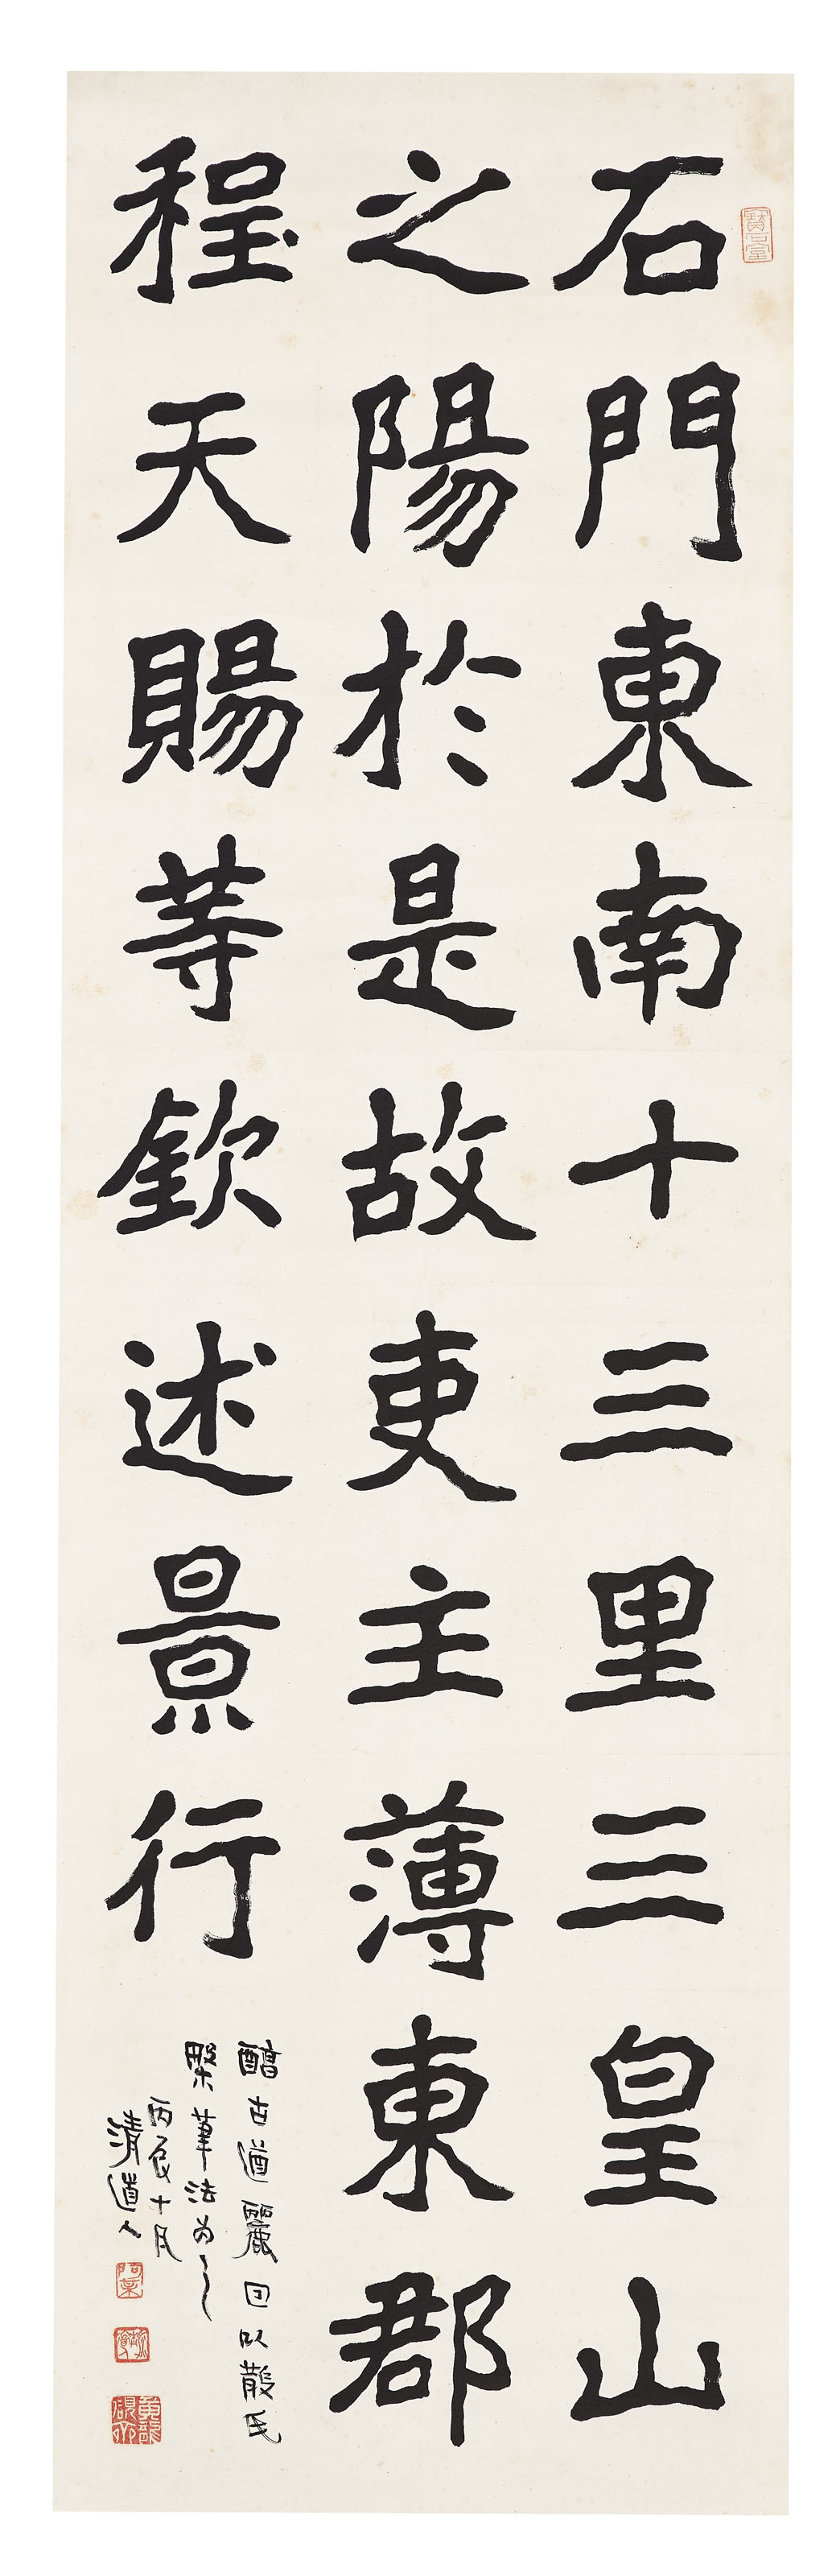 石門東南十三里三皇山
之陽於是故吏主薄東郡
程天賜等欽述景行
醕古遒麗因以散氏
槃筆法為之
丙辰十月
清道人
寶石堂
阿某
黃龍硯齋